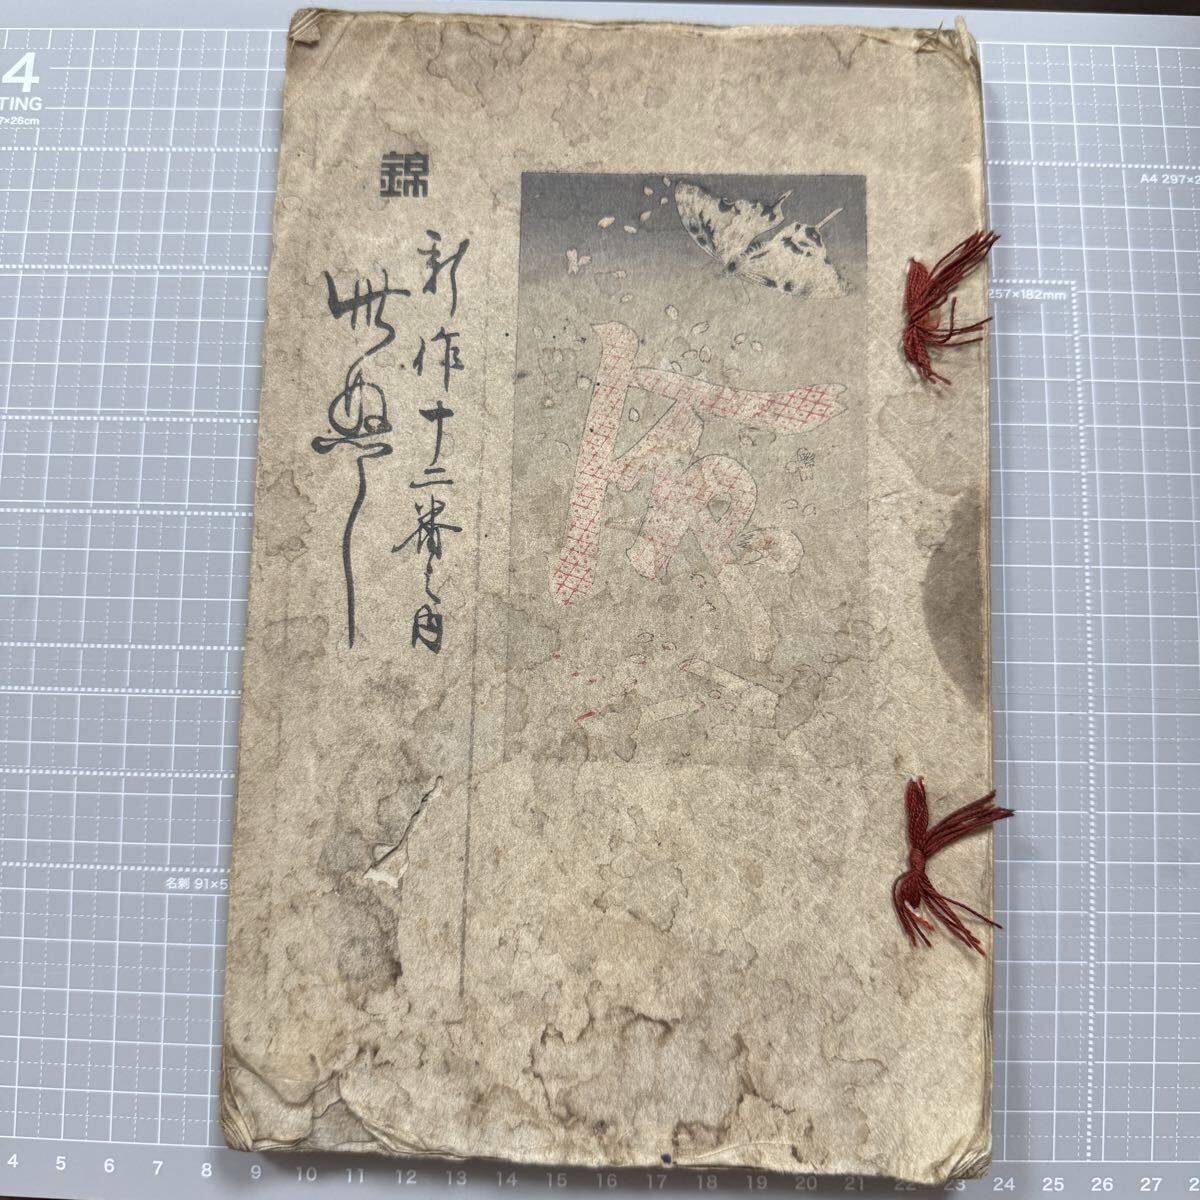 錦
新作十二番之内
此ぬし
4
TING
7×26cm
A4 297×2
257×182mm
名刺 91×5
4 5 6 7 8 9 10 11 12 13 14 15 16 17 18 19 20 21 22 23 24 25 26 27 2